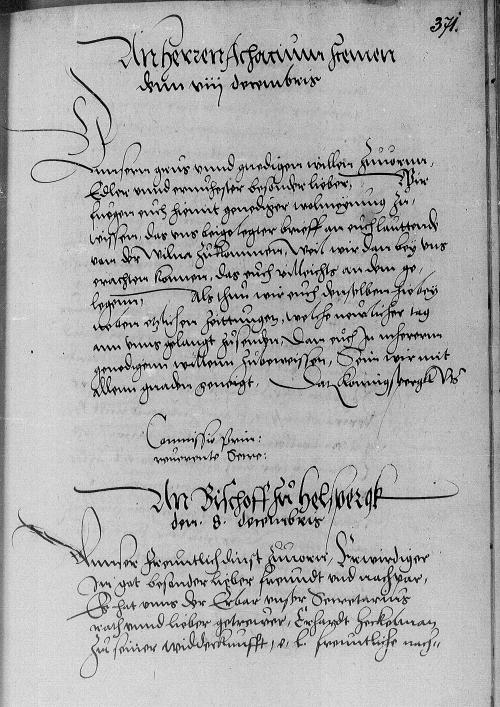 371.
An herren Achatium Zemen
denn viii decembris
Unnsern grus unnd gnedigen willen zuuornn,
Edler unnd ernuhester besonder lieber, Wir
fuegen euch hiemit genediger wolmeynung zu
wissen, das uns beigelegter brieff an euch lauttende
von der Wilna zukommen, Weil wir dan bey uns
erachten konnen, das euch villeichts an dem ge
legenn, Als thun wir euch denselben hiebey
neben etzlichen Zeittungen, welche newlicher tag
ann unns gelangt zusenden, Dan euch In mherernn
genedigenn willenn zubeweissen, Sein wir mit
allenn gnaden geneigt, Dat Konnigspergk Vts
Commissio Prin:
referente Secre:
An Bischoff zu Helspergk
den 8. decembris
Unnser freuntlich dinst zuuorn, Erwirdiger
In got besonder lieber freundt und nachpar,
Es hat unns der Erbar unser Secretarius
rath unnd lieber getreuer, Erhardt Heckelman
zu seiner widderkunfft, e. l. freuntliche nach=